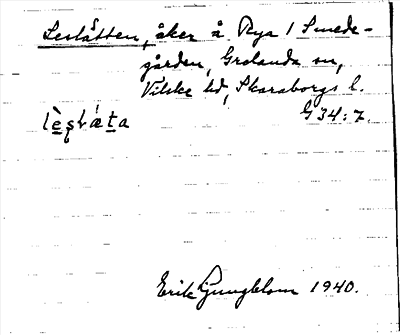 Leslätten, åker å Rya 1 Smede-
gården, Grolanda sn,
Vilske hd, Skaraborgs l.
G 34:7.
lèslǽta
Erik Ljungblom 1940.